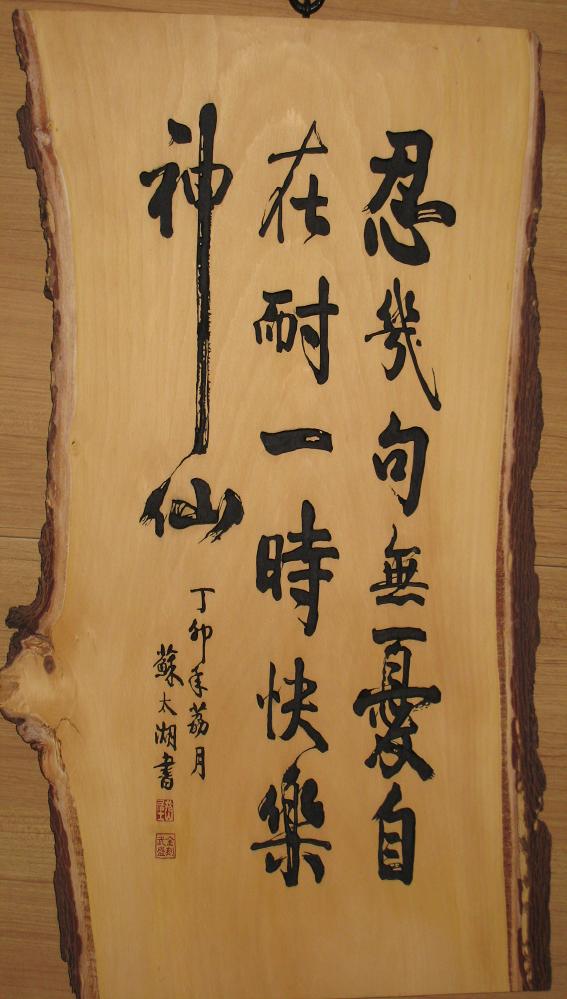 忍幾句無憂自
在耐一時快樂
神仙
丁卯年荔月
蘇太湖書